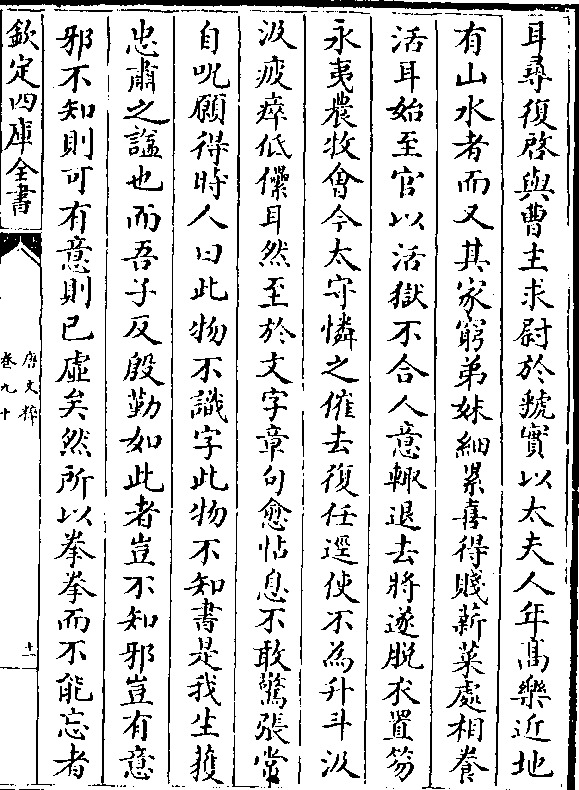 耳尋復啓與曹主求尉於虢實以太夫人年髙樂近地
有山水者而又其家窮弟妹細累喜得賤薪菜處相養
活耳始至官以活獄不合人意輙退去將遂脫求置笏
永夷農牧㑹今太守憐之催去復任逕使不為升斗汲
汲疲瘁低儽耳然至於文字章句愈怗息不敢驚張嘗
自呪願得時人曰此物不識字此物不知書是我生獲
忠肅之諡也而吾子反殷勤如此者豈不知邪豈有意
邪不知則可有意則已虛矣然所以拳拳而不能忘者
欽定四庫全書
唐文粹
卷九十
十一